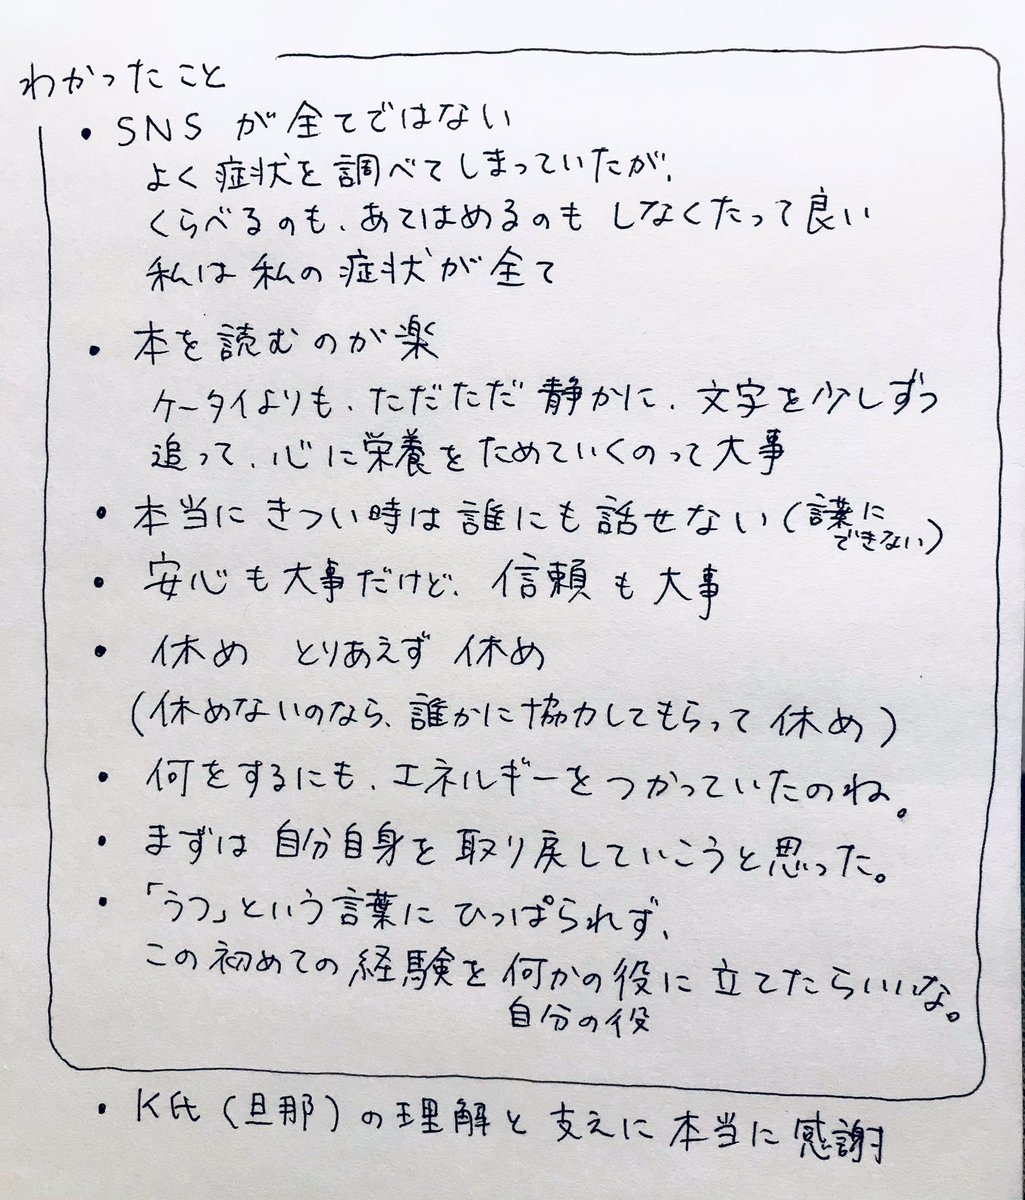 わかったこと
・SNSが全てではない
よく症状を調べてしまっていたが、
くらべるのも、あてはめるのも しなくたって良い
私は私の症状が全て
・本を読むのが楽
ケータイよりも、ただただ静かに、文字を少しずつ
追って、心に栄養をためていくのって大事
・本当にきつい時は誰にも話せない(言葉に
できない)
・安心も大事だけど、信頼も大事
・休め とりあえず休め
(休めないのなら、誰かに協力してもらって休め)
・何をするにも、エネルギーをつかっていたのね。
・まずは自分自身を取り戻していこうと思った。
・「うつ」という言葉にひっぱられず、
この初めての経験を何かの役に立てたらいいな。
自分の役
・K氏(旦那)の理解と支えに本当に感謝